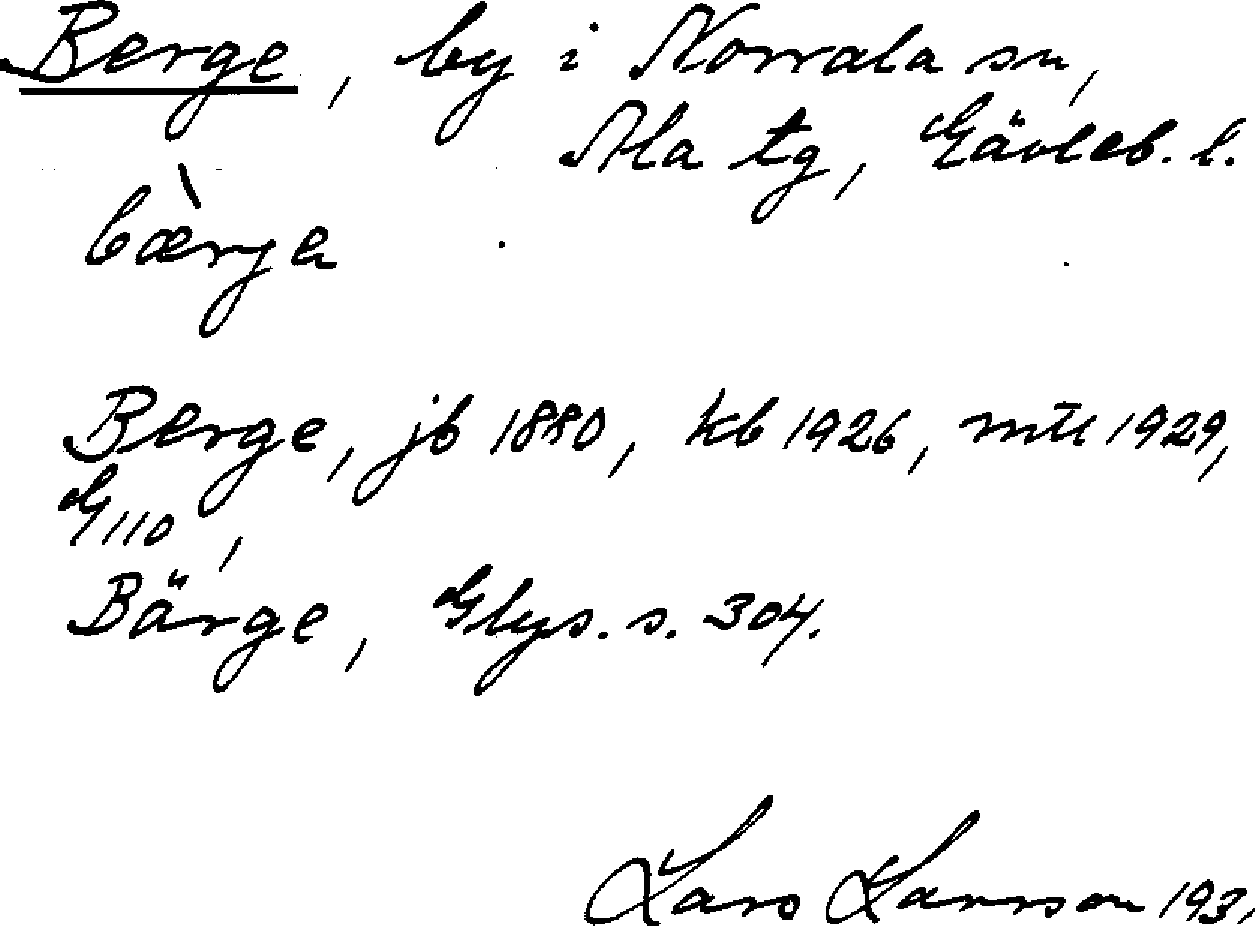 Berge, by i Norrala sn,
Ala tg, Gävleb. l.
bæ̀rga
Berge, jb 1880, kb 1926, mtl 1929,
G 110,
Bärge, Glys. s. 304.
Lars Larsson 193